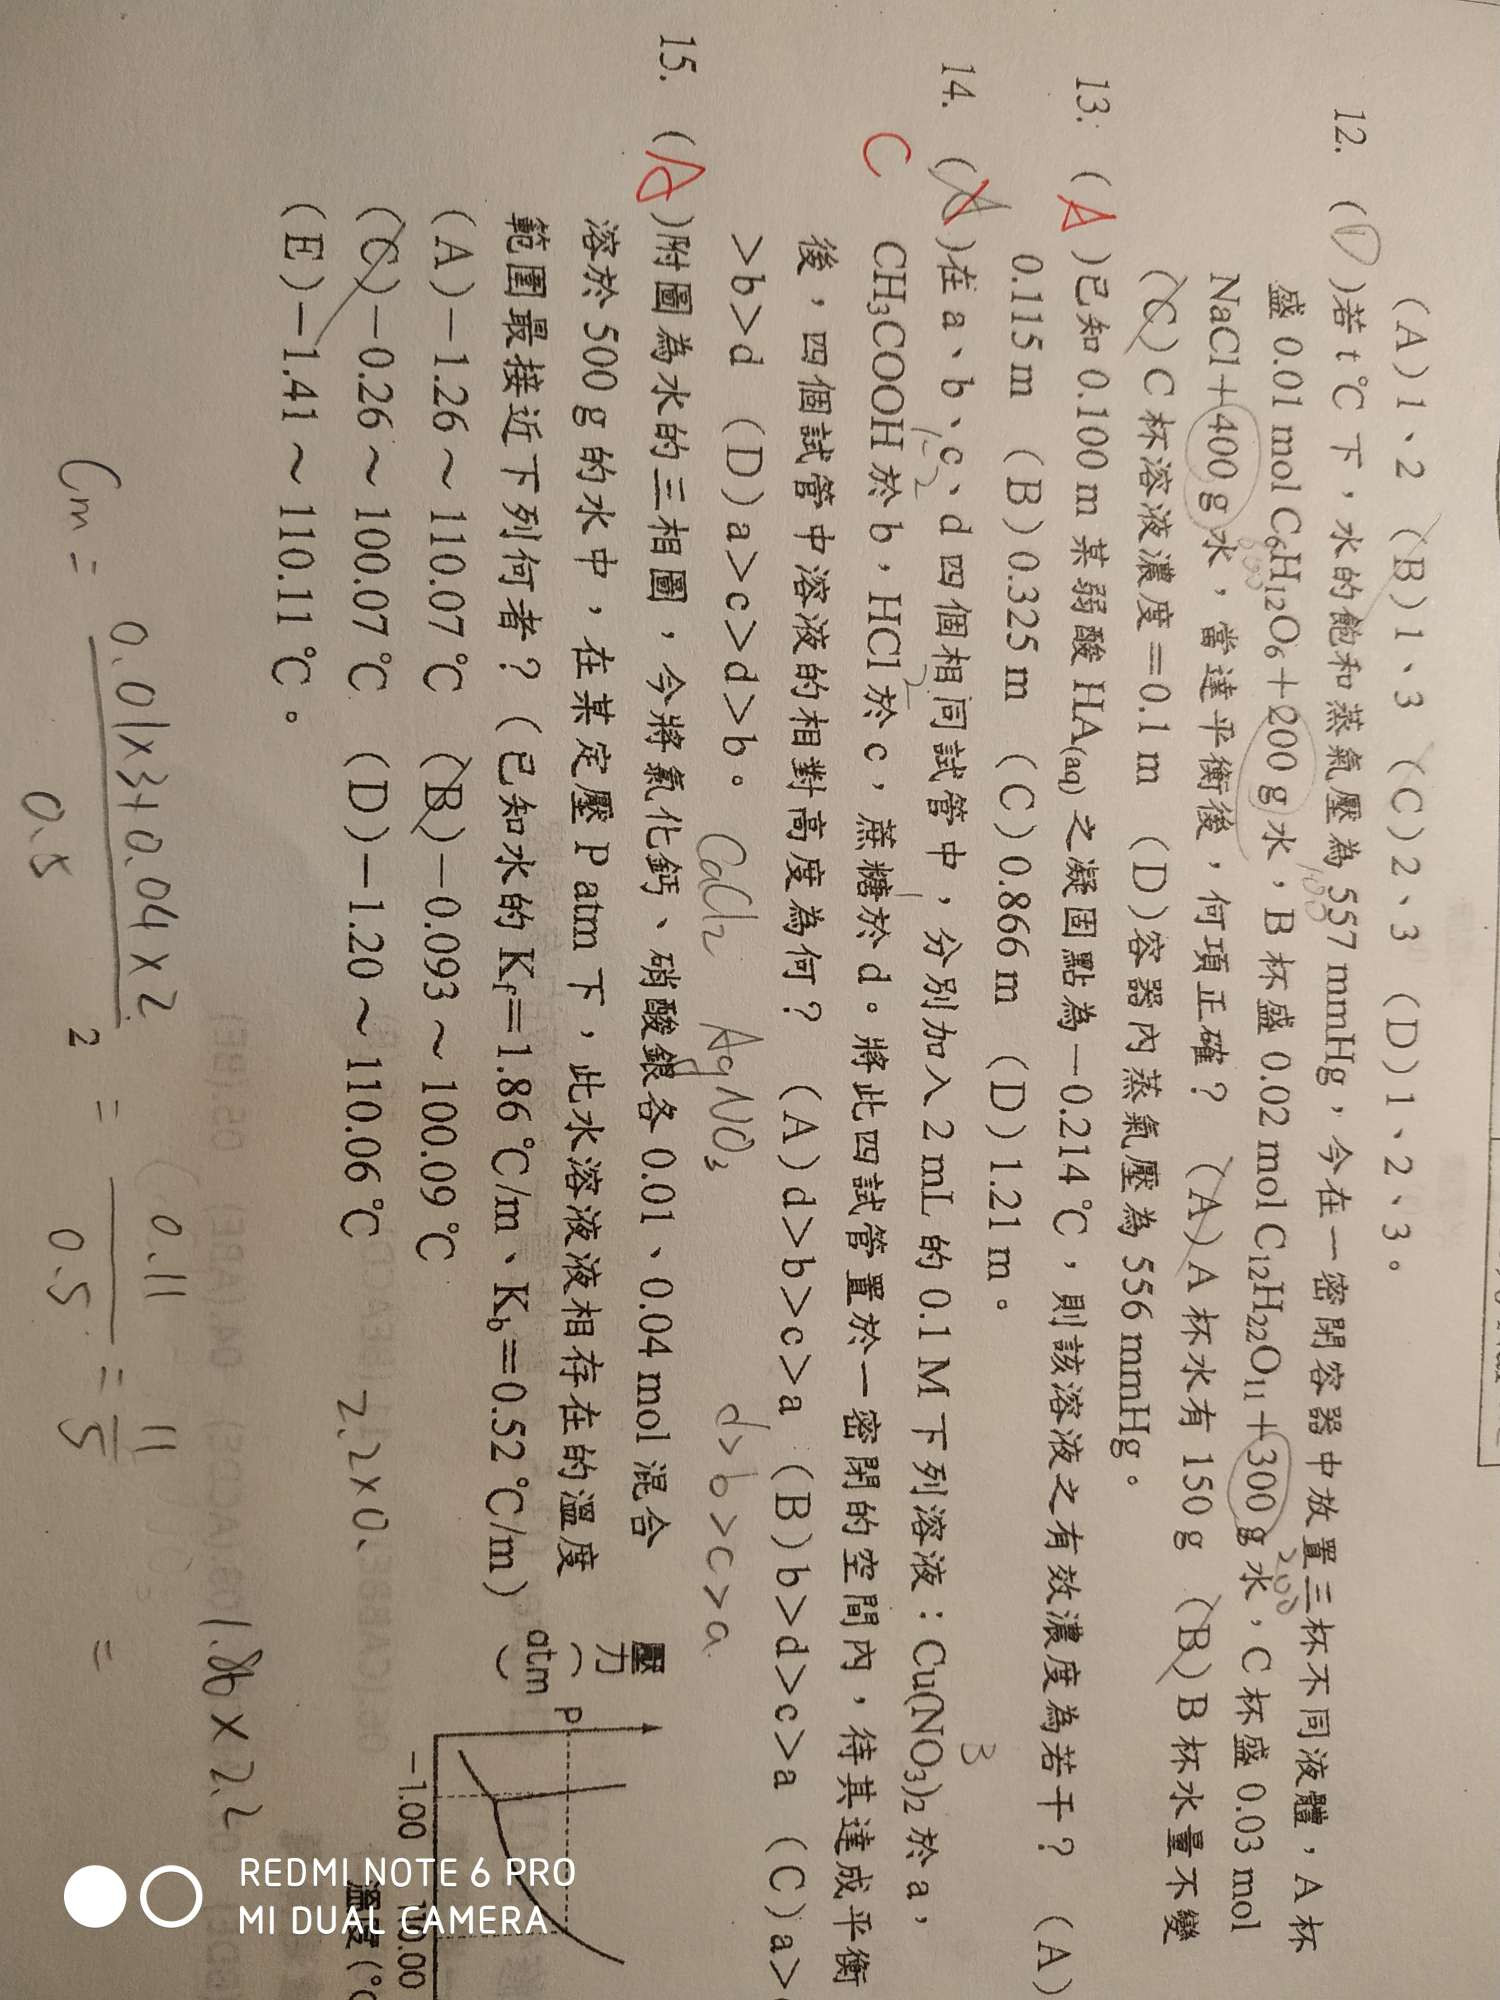 (A)1、2 (B)1、3 (C)2、3 (D)1、2、3。
12. (D)若t℃下，水的飽和蒸氣壓為557 mmHg，今在一密閉容器中放置三杯不同液體，A杯
盛0.01 mol C₆H₁₂O₆＋200 g水，B杯盛0.02 mol C₁₂H₂₂O₁₁＋300 g水，C杯盛0.03 mol
NaCl＋400 g水，當達平衡後，何項正確？ (A)A杯水有150 g (B)B杯水量不變
(C)C杯溶液濃度＝0.1 m (D)容器內蒸氣壓為556 mmHg。
13. (A)已知0.100 m某弱酸HA(aq)之凝固點為－0.214℃，則該溶液之有效濃度為若干？ (A)
0.115 m (B)0.325 m (C)0.866 m (D)1.21 m。
14. (A)在a、b、c、d四個相同試管中，分別加入2 mL的0.1 M下列溶液：Cu(NO₃)₂於a，
C
CH₃COOH於b，HCl於c，蔗糖於d。將此四試管置於一密閉的空間內，待其達成平衡
後，四個試管中溶液的相對高度為何？ (A)d＞b＞c＞a (B)b＞d＞c＞a (C)a＞c
＞b＞d (D)a＞c＞d＞b。
CaCl₂ AgNO₃ d>b>c>a
15. (A)附圖為水的三相圖，今將氯化鈣、硝酸銀各0.01、0.04 mol混合
溶於500 g的水中，在某定壓P atm下，此水溶液液相存在的溫度
範圍最接近下列何者？（已知水的Kf＝1.86℃/m、Kb＝0.52℃/m）
(A)－1.26～110.07℃ (B)－0.093～100.09℃
(C)－0.26～100.07℃ (D)－1.20～110.06℃
(E)－1.41～110.11℃。
壓力（atm）
P
－1.00
110.00
溫度(℃
2.2×0.
1.86×2.2
Cm = 0.01×3+0.04×2 / 0.5 = 0.11 / 0.5 = 11 / 5 =
2
REDMI NOTE 6 PRO
MI DUAL CAMERA